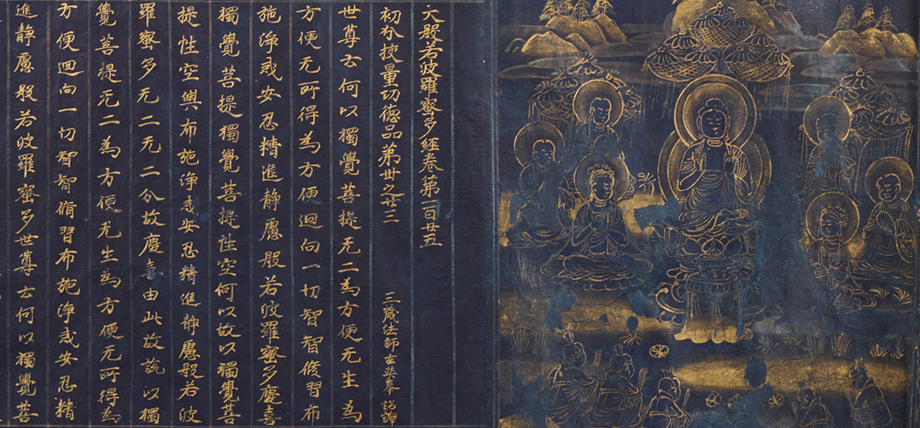 大般若波羅蜜多經卷第一百廿五
初分挍量功德品第卅之廿三
三藏法師玄奘奉 詔譯
世尊云何以獨覺菩提无二為方便无生為
方便无所得為方便迴向一切智智修習布
施淨戒安忍精進靜慮般若波羅蜜多慶喜
獨覺菩提獨覺菩提性空何以故以獨覺菩
提性空與布施淨戒安忍精進靜慮般若波
羅蜜多无二无二分故慶喜由此故說以獨
覺菩提无二為方便无生為方便无所得為
方便迴向一切智智脩習布施淨戒安忍精
進靜慮般若波羅蜜多世尊云何以獨覺菩